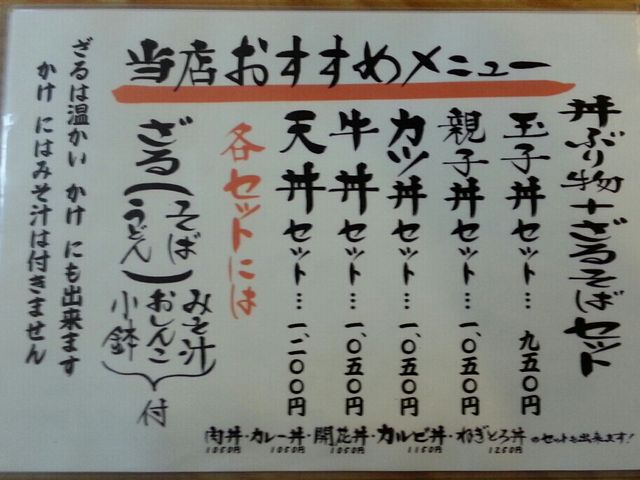 当店おすすめメニュー
丼ぶり物＋ざるそばセット
玉子丼セット…九五〇円
親子丼セット…一、〇五〇円
カツ丼セット…一、〇五〇円
牛丼セット…一、〇五〇円
天丼セット…一、二〇〇円
各セットには
ざる（そば うどん）みそ汁 おしんこ 小鉢 付
ざるは温かい かけ にも出来ます
かけ にはみそ汁は付きません
肉丼・カレー丼・開花丼・カルビ丼・ねぎとろ丼のセットも出来ます!
1050円 1050円 1050円 1150円 1250円